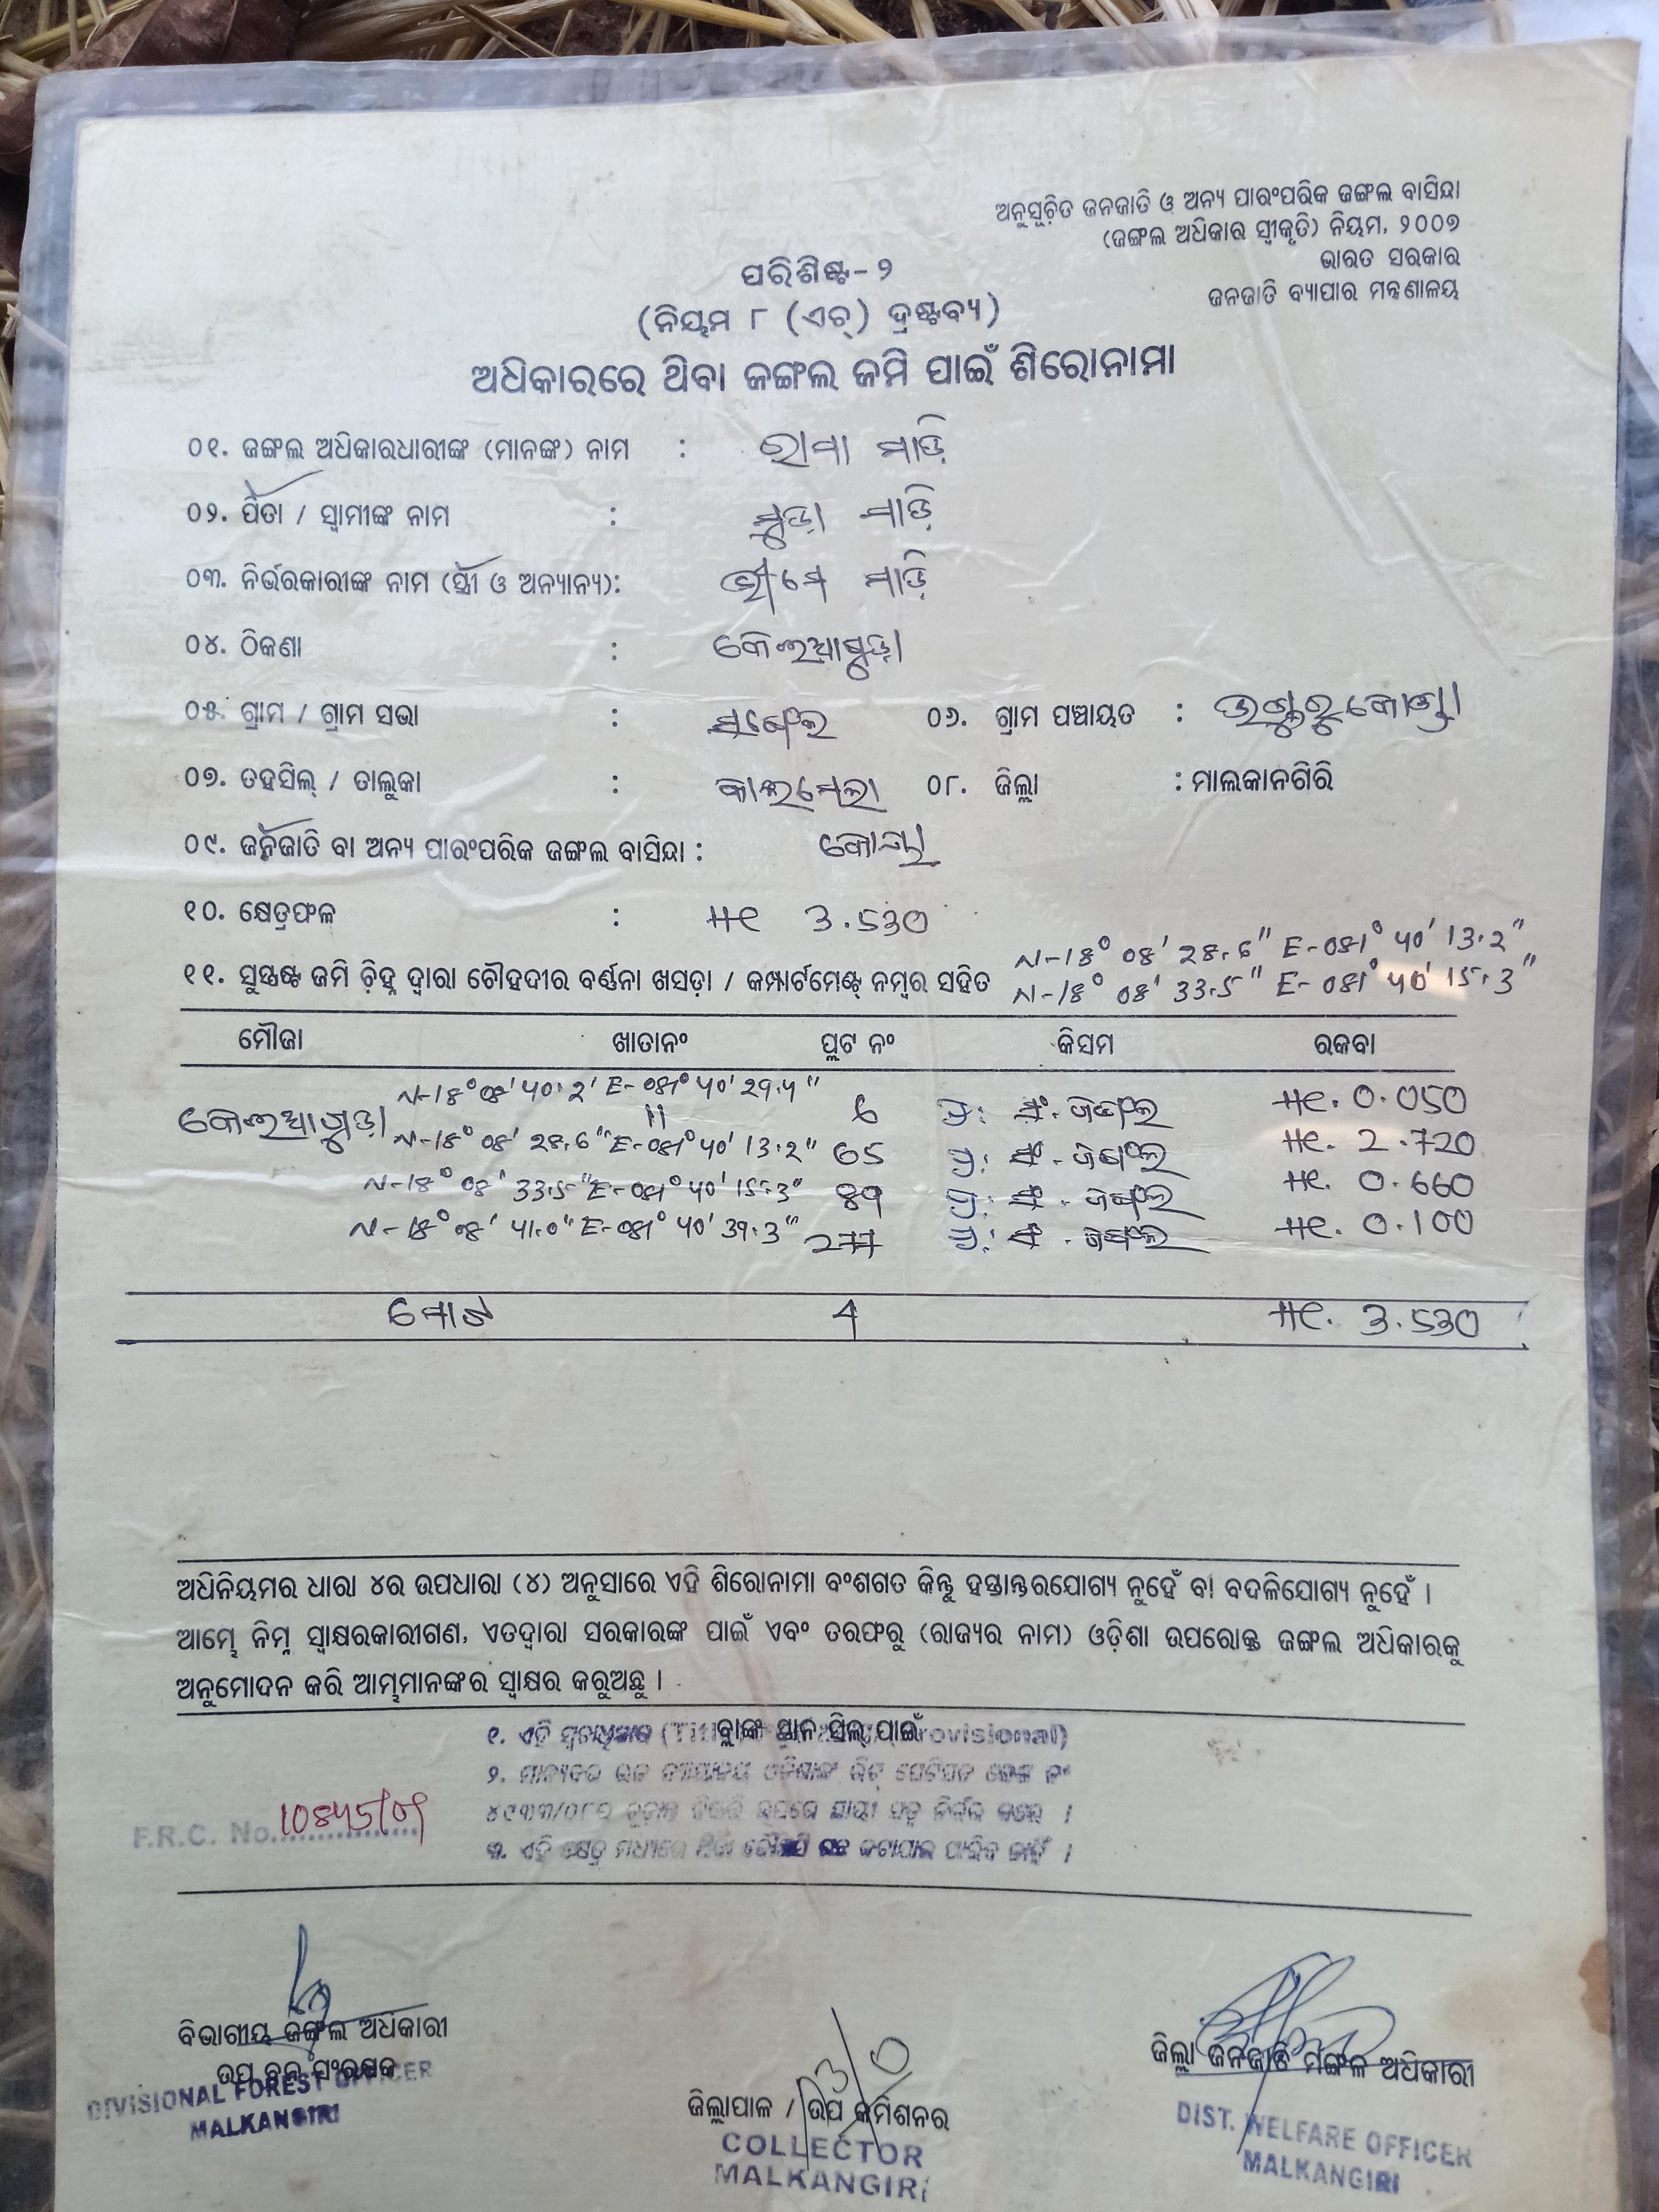 ଅନୁସୂଚିତ ଜନଜାତି ଓ ଅନ୍ୟ ପାରଂପରିକ ଜଙ୍ଗଲ ବାସିନ୍ଦା
(ଜଙ୍ଗଲ ଅଧିକାର ସ୍ୱୀକୃତି) ନିୟମ, ୨୦୦୭
ଭାରତ ସରକାର
ଜନଜାତି ବ୍ୟାପାର ମନ୍ତ୍ରଣାଳୟ
ପରିଶିଷ୍ଟ-୨
(ନିୟମ ୮ (ଏଚ୍) ଦ୍ରଷ୍ଟବ୍ୟ)
ଅଧିକାରରେ ଥିବା ଜଙ୍ଗଲ ଜମି ପାଇଁ ଶିରୋନାମା
୦୧. ଜଙ୍ଗଲ ଅଧିକାରଧାରୀଙ୍କ (ମାନଙ୍କ) ନାମ : ରାମା ମାଡ଼ି
୦୨. ପିତା / ସ୍ୱାମୀଙ୍କ ନାମ : ମୁଡ଼ା ମାଡ଼ି
୦୩. ନିର୍ଭରକାରୀଙ୍କ ନାମ (ସ୍ତ୍ରୀ ଓ ଅନ୍ୟାନ୍ୟ): ଭୀମେ ମାଡ଼ି
୦୪. ଠିକଣା :
୦୫. ଗ୍ରାମ / ଗ୍ରାମ ସଭା : ୦୬. ଗ୍ରାମ ପଞ୍ଚାୟତ :
୦୭. ତହସିଲ୍ / ତାଲୁକା : କାଲମେଲା ୦୮. ଜିଲ୍ଲା : ମାଲକାନଗିରି
୦୯. ଜନଜାତି ବା ଅନ୍ୟ ପାରଂପରିକ ଜଙ୍ଗଲ ବାସିନ୍ଦା : କୋୟା
୧୦. କ୍ଷେତ୍ରଫଳ : He 3.530
N-18° 08' 28.6" E-081° 40' 13.2"
୧୧. ସୁସ୍ପଷ୍ଟ ଜମି ଚିହ୍ନ ଦ୍ୱାରା ଚୌହଦୀର ବର୍ଣ୍ଣନା ଖସଡ଼ା / କମ୍ପାର୍ଟମେଣ୍ଟ୍ ନମ୍ବର ସହିତ N-18° 08' 33.5" E-081° 40' 15.3"
ମୌଜା ଖାତାନଂ ପ୍ଲଟ ନଂ କିସମ ରକବା
N-18° 08' 40.2' E-081° 40' 29.4"
11 6 ଜଙ୍ଗଲ He. 0.050
N-18° 08' 28.6" E-081° 40' 13.2" 65 ଜଙ୍ଗଲ He. 2.720
N-18° 08' 33.5" E-081° 40' 15.3" 89 ଜଙ୍ଗଲ He. 0.660
N-18° 08' 41.0" E-081° 40' 39.3" 277 ଜଙ୍ଗଲ He. 0.100
ମୋଟ 4 He. 3.530
ଅଧିନିୟମର ଧାରା ୪ର ଉପଧାରା (୪) ଅନୁସାରେ ଏହି ଶିରୋନାମା ବଂଶଗତ କିନ୍ତୁ ହସ୍ତାନ୍ତରଯୋଗ୍ୟ ନୁହେଁ ବା ବଦଳିଯୋଗ୍ୟ ନୁହେଁ ।
ଆମ୍ଭେ ନିମ୍ନ ସ୍ୱାକ୍ଷରକାରୀଗଣ, ଏତଦ୍ୱାରା ସରକାରଙ୍କ ପାଇଁ ଏବଂ ତରଫରୁ (ରାଜ୍ୟର ନାମ) ଓଡ଼ିଶା ଉପରୋକ୍ତ ଜଙ୍ଗଲ ଅଧିକାରକୁ
ଅନୁମୋଦନ କରି ଆମ୍ଭମାନଙ୍କର ସ୍ୱାକ୍ଷର କରୁଅଛୁ ।
ବ୍ଲାଙ୍କ ସ୍ଥାନ ସିଲ୍ ପାଇଁ
୧. ଏହି (Title provisional)
୨.
୪୯୩୩/୦୮ର
F.R.C. No. 10845/09
୩. ଏହି କ୍ଷେତ୍ର
ବିଭାଗୀୟ ଜଙ୍ଗଲ ଅଧିକାରୀ
ଉପ ବନ ସଂରକ୍ଷକ
DIVISIONAL FOREST OFFICER
MALKANGIRI
ଜିଲ୍ଲାପାଳ / ଉପ କମିଶନର
COLLECTOR
MALKANGIRI
ଜିଲ୍ଲା ଜନଜାତି ମଙ୍ଗଳ ଅଧିକାରୀ
DIST. WELFARE OFFICER
MALKANGIRI